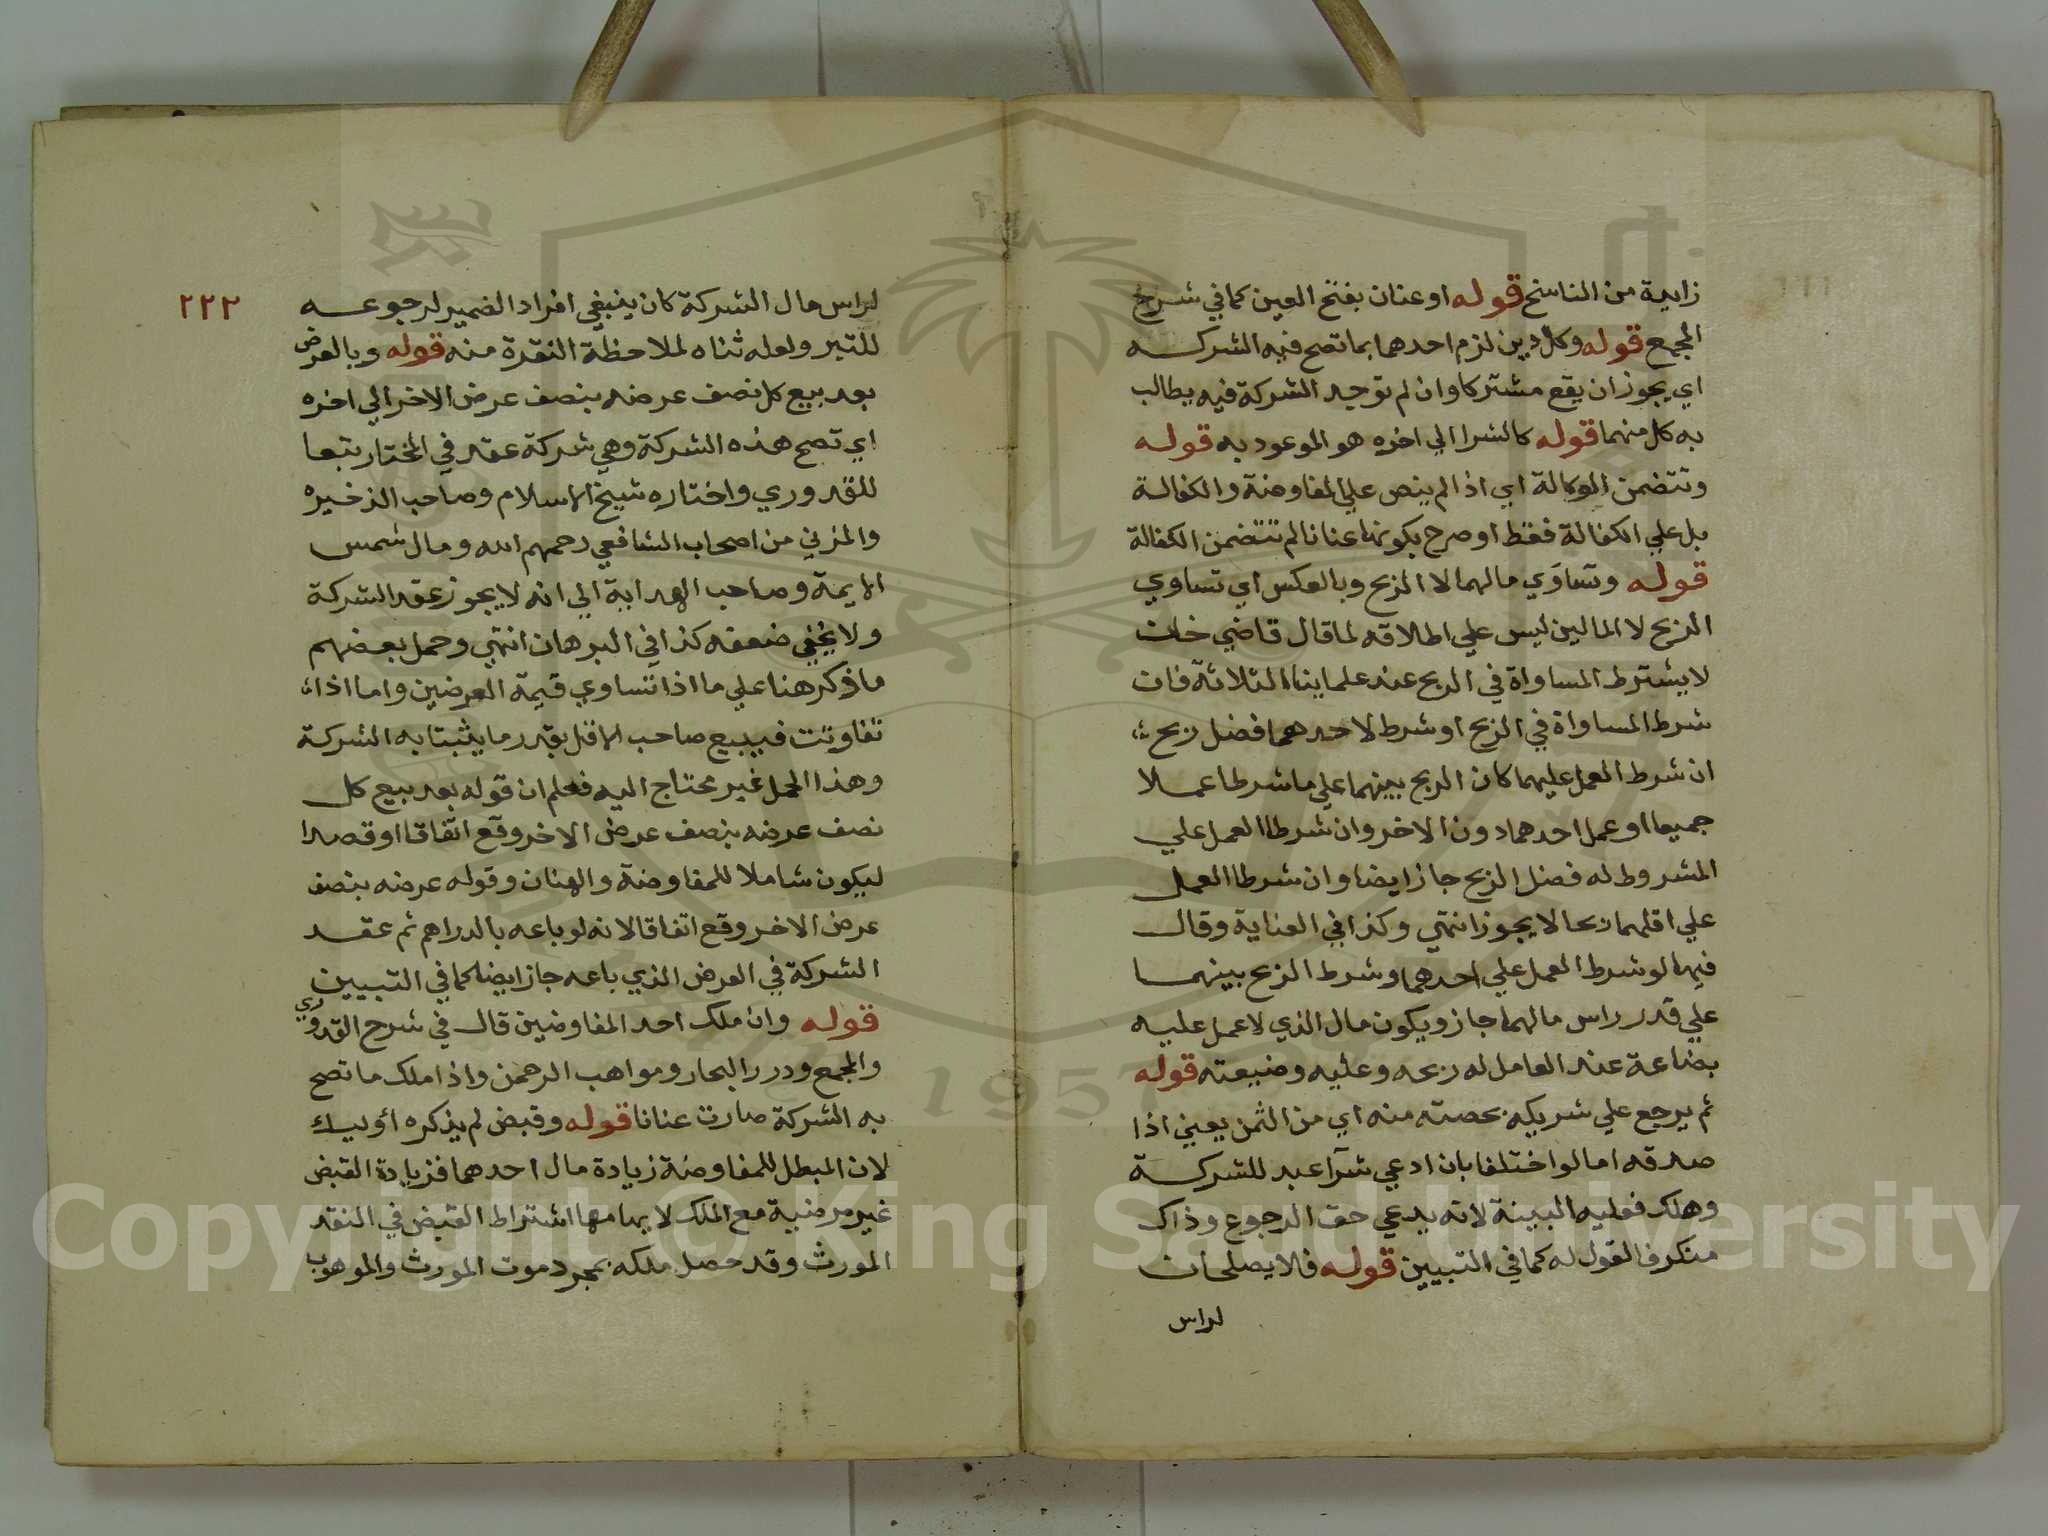 زايدة من الناسخ قوله او عنان بفتح العين كما في شرح
المجمع قوله وكل دين لزم احدهما بما تصح فيه الشركه
اي يجوز ان يقع مشتركا وان لم توجد الشركة فيه يطالب
به كل منهما قوله كالشرا الي اخره هو الموعود به قوله
وتتضمن الوكالة اي اذا لم ينص علي المفاوضة والكفالة
بل علي الكفالة فقط او صرح بكونها عنانا لم تتضمن الكفالة
قوله وتساوي مالهما لا الربح وبالعكس اي تساوي
الربح لا المالين ليس علي اطلاقه لما قال قاضي خان
لا يشترط المساواة في الربح عند علماينا الثلاثة فان
شرط المساواة في الربح او شرط لاحدهما فضل ربح
ان شرط العمل عليهما كان الربح بينهما علي ما شرطا عملا
جميعا او عمل احدهما دون الاخر وان شرطا العمل علي
المشروط له فضل الربح جاز ايضا وان شرطا العمل
علي اقلهما ربحا لا يجوز انتهي وكذا في العناية وقال
فيها لو شرط العمل علي احدهما وشرط الربح بينهما
علي قدر راس مالهما جاز ويكون مال الذي لا عمل عليه
بضاعة عند العامل له ربحه وعليه وضيعته قوله
ثم يرجع علي شريكه بحصته منه اي من الثمن يعني اذا
صدقه اما لو اختلفا بان ادعي شرآ عبد للشركة
وهلك فعليه البينة لانه يدعي حق الرجوع وذاك
منكر فالقول له كما في التبيين قوله فلا يصلحان
لراس
٢٢٢
لراس مال الشركة كان ينبغي افراد الضمير لرجوعه
للتبر ولعله ثناه لملاحظة النقرة منه قوله وبالعرض
بعد بيع كل نصف عرضه بنصف عرض الاخر الي اخره
اي تصح هذه الشركة وهي شركة عقد في المختار تبعا
للقدوري واختاره شيخ الاسلام وصاحب الذخيره
والمزني من اصحاب الشافعي رحمهم الله ومال شمس
الايمة وصاحب الهداية الي انه لا يجوز عقد الشركة
ولا يخفي ضعفه كذا في البرهان انتهي وحمل بعضهم
ما ذكر هنا علي ما اذا تساوي قيمة العرضين واما اذا
تفاوتت فيبيع صاحب الاقل بقدر ما يثبتا به الشركة
وهذا الحمل غير محتاج اليه فعلم ان قوله بعد بيع كل
نصف عرضه بنصف عرض الاخر وقع اتفاقا او قصدا
ليكون شاملا للمفاوضة والعنان وقوله عرضه بنصف
عرض الاخر وقع اتفاقا لانه لو باعه بالدراهم ثم عقد
الشركة في العرض الذي باعه جاز ايضا كما في التبيين
قوله وان ملك احد المفاوضين قال في شرح القدوري
والمجمع ودرر البحار ومواهب الرحمن واذا ملك ما تصح
به الشركة صارت عنانا قوله وقبض لم يذكره أوليك
لان المبطل للمفاوضة زيادة مال احدهما فزيادة القبض
غير مرضية مع الملك لايهامها اشتراط القبض في النقد
المورث وقد حصل ملكه بمجرد موت المورث والموهوب
Copyright © King Saud University
1957